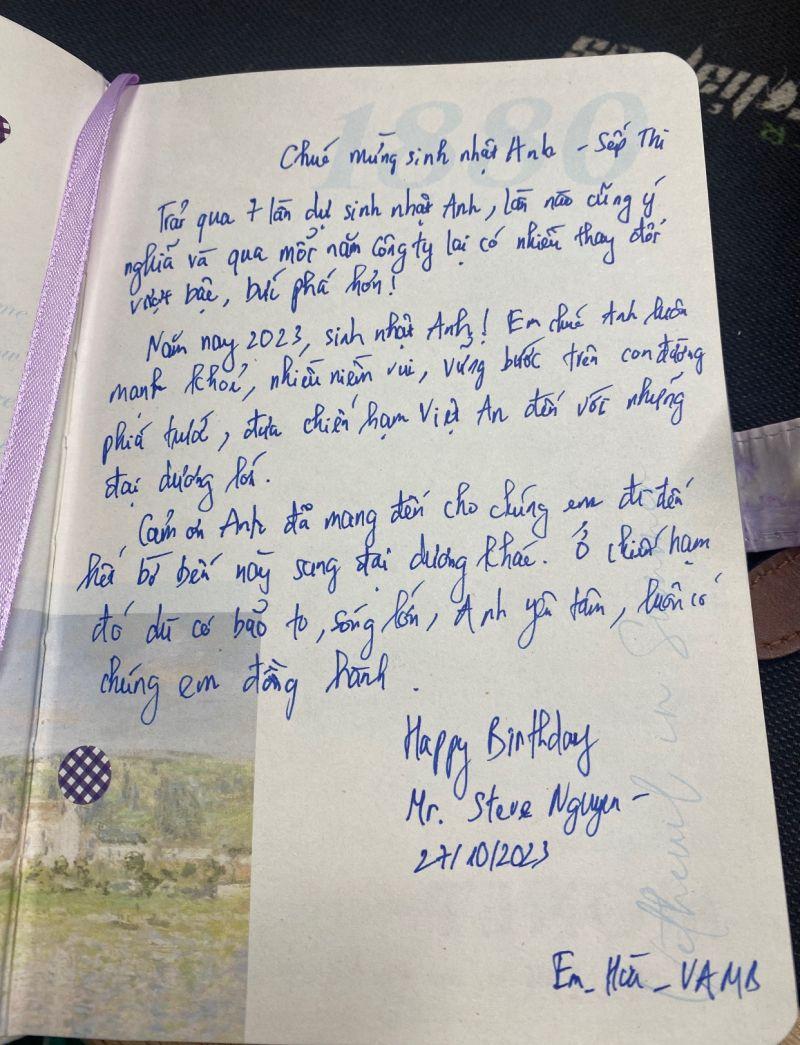 1880
Chúc mừng sinh nhật Anh - Sếp Thi
Trải qua 7 lần dự sinh nhật Anh, lần nào cũng ý
nghĩã và qua mỗi năm Công ty lại có nhiều thay đổi
vượt bậc, bứt phá hơn!
Năm nay 2023, sinh nhật Anh! Em chúc Anh luôn
mạnh khoẻ, nhiều niềm vui, vững bước trên con đường
phía trước, đưa chiến hạm Việt An đến với những
đại dương lớn.
Cảm ơn Anh đã mang đến cho chúng em đi đến
hết bờ bến này sang đại dương khác. Ở chiến hạm
đó dù có bảo to, sóng lớn, Anh yên tâm, luôn có
chúng em đồng hành.
Happy Birthday
Mr. Steve Nguyen -
27/10/2023
Em - - VAMB
in